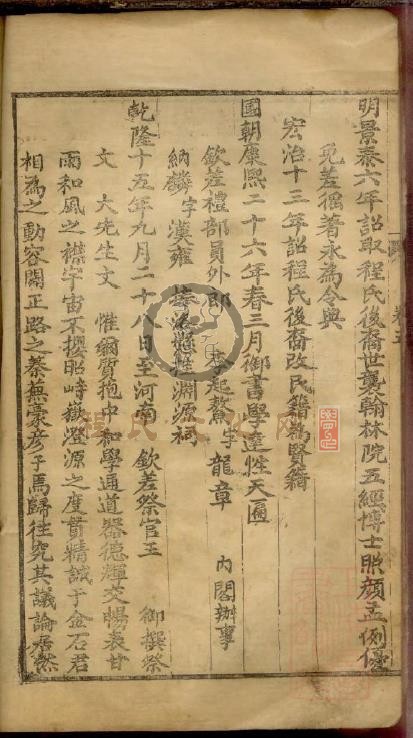 明景泰六年詔取程氏後裔世襲翰林院五經博士照顏孟例優
免差徭著永為令典
宏治十三年詔程氏後裔改民籍為賢籍
國朝康熙二十六年春三月御書學達性天匾
欽差禮部員外郎 李起鰲字龍章 內閣辦事
納麟字漢雍 捧
懸性淵源祠
乾隆十五年九月二十八日至河南 欽差祭官王 御撰祭
文 大先生文 惟爾質抱中和學通道器德輝交暢表甘
雨和風之襟宇宙不攖昭峙嶽澄源之度貫精誠于金石君
相為之動容開正路之蓁蕪豪彥子焉歸往究其議論居然
卷五